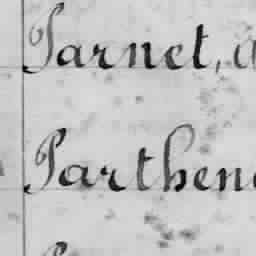 Parnet, a
Parthen